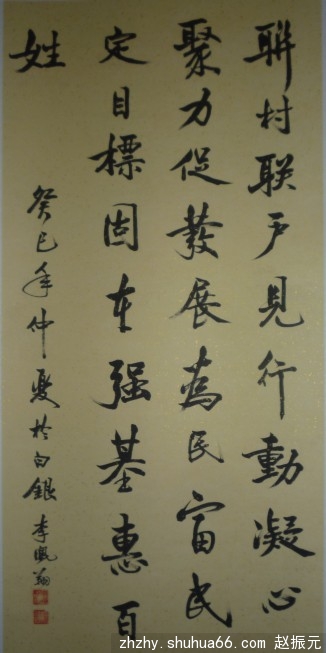 聨村联户見行動凝心
聚力促發展為民富民
定目標固本强基惠百
姓
癸巳年仲夏於白銀 李鳳翔
zhzhy.shuhua66.com 赵振元